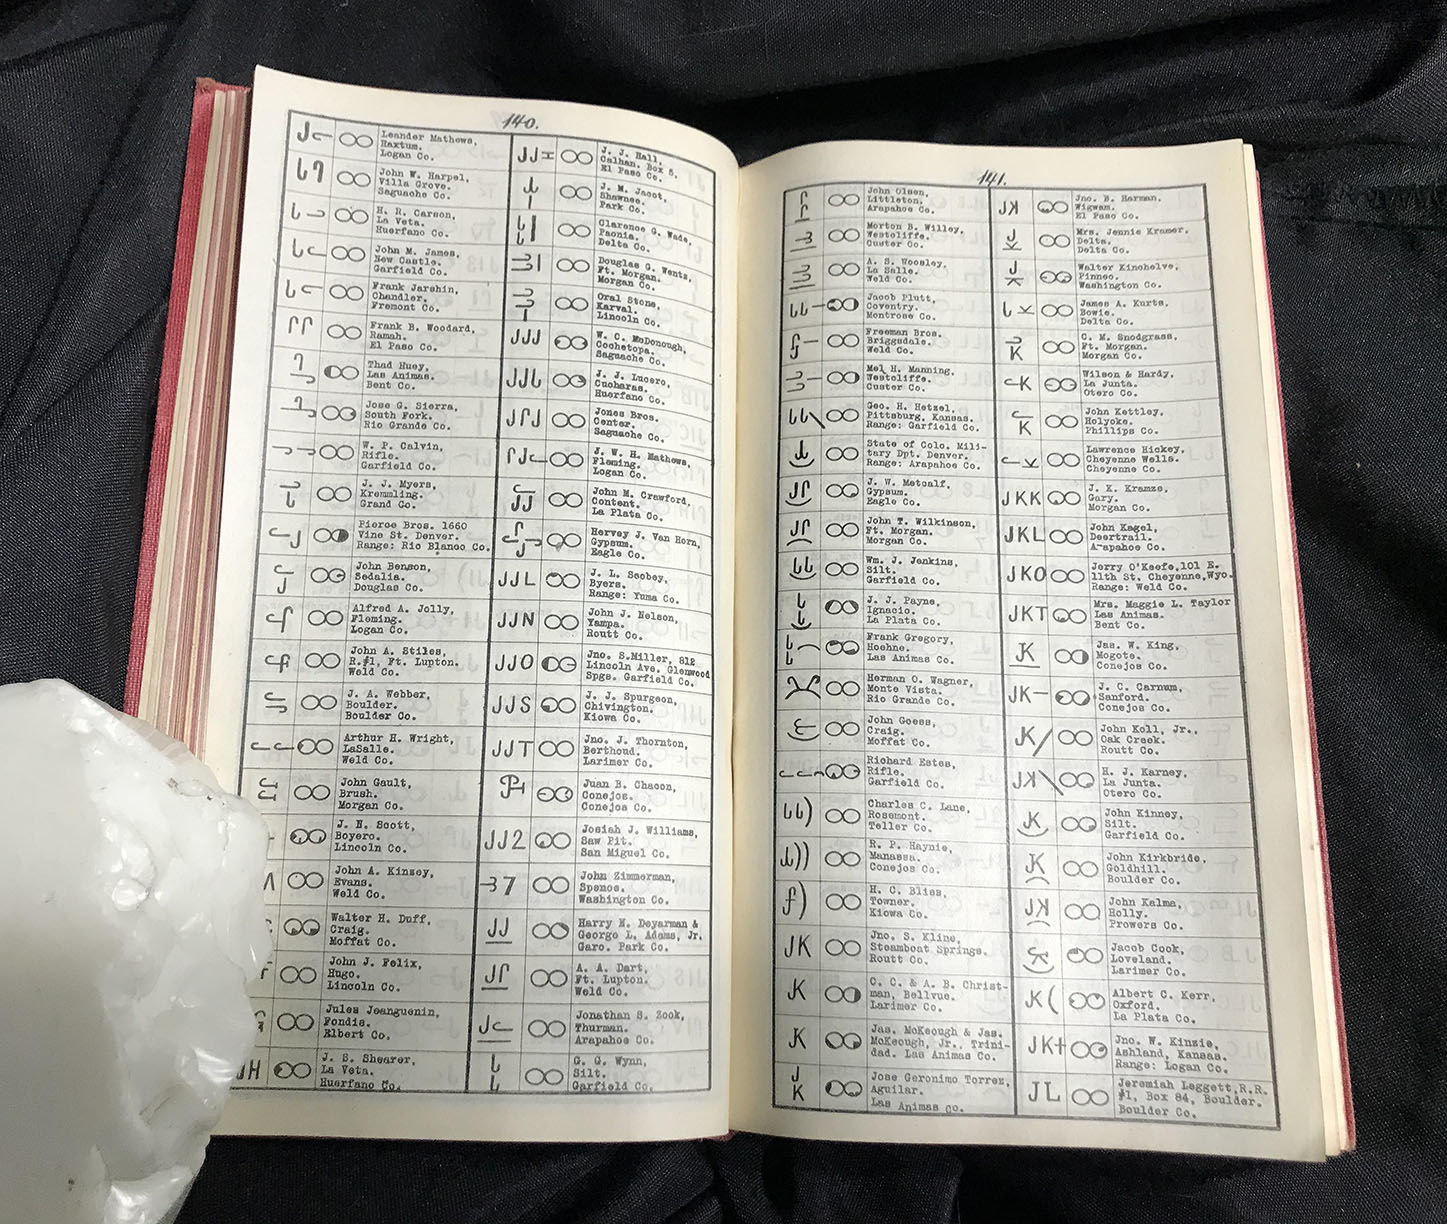 140.
Leander Mathews,
Haxtum.
Logan Co.
John W. Harpel,
Villa Grove.
Saguache Co.
H. R. Carson,
La Veta.
Huerfano Co.
John M. James,
New Castle.
Garfield Co.
Frank Jarshin,
Chandler.
Fremont Co.
Frank B. Woodard,
Ramah.
El Paso Co.
Thad Huey,
Las Animas.
Bent Co.
Jose G. Sierra,
South Fork.
Rio Grande Co.
W. P. Calvin,
Rifle.
Garfield Co.
J. J. Myers,
Kremmling.
Grand Co.
Pierce Bros. 1660
Vine St. Denver.
Range: Rio Blanco Co.
John Benson,
Sedalia.
Douglas Co.
Alfred A. Jolly,
Fleming.
Logan Co.
John A. Stiles,
R.#1, Ft. Lupton.
Weld Co.
J. A. Webber,
Boulder.
Boulder Co.
Arthur H. Wright,
LaSalle.
Weld Co.
John Gault,
Brush.
Morgan Co.
J. N. Scott,
Boyero.
Lincoln Co.
John A. Kinsey,
Evans.
Weld Co.
Walter H. Duff,
Craig.
Moffat Co.
John J. Felix,
Hugo.
Lincoln Co.
Jules Jeanguenin,
Fondis.
Elbert Co.
JH
J. S. Shearer,
La Veta.
Huerfano Co.
JJ
J. J. Hall,
Calhan. Box 5.
El Paso Co.
J. M. Jacot,
Shawnee.
Park Co.
Clarence G. Wade,
Paonia.
Delta Co.
Douglas G. Wentz,
Ft. Morgan.
Morgan Co.
Oral Stone,
Karval.
Lincoln Co.
JJJ
W. C. McDonough,
Cochetopa.
Saguache Co.
J. J. Lucero,
Cucharas.
Huerfano Co.
Jones Bros.
Center.
Saguache Co.
J. W. H. Mathews,
Fleming.
Logan Co.
JJ
John M. Crawford,
Content.
La Plata Co.
Hervey J. Van Horn,
Gypsum.
Eagle Co.
JJL
J. L. Scobey,
Byers.
Range: Yuma Co.
JJN
John J. Nelson,
Yampa.
Routt Co.
JJO
Jno. S.Miller, 812
Lincoln Ave. Glenwood
Spgs. Garfield Co.
JJS
J. J. Spurgeon,
Chivington.
Kiowa Co.
JJT
Jno. J. Thornton,
Berthoud.
Larimer Co.
Juan B. Chacon,
Conejos.
Conejos Co.
JJ2
Josiah J. Williams,
Saw Pit.
San Miguel Co.
John Zimmerman,
Spence.
Washington Co.
JJ
Harry N. Deyarman &
George L. Adams, Jr.
Garo. Park Co.
A. A. Dart,
Ft. Lupton.
Weld Co.
Jonathan S. Zook,
Thurman.
Arapahoe Co.
G. G. Wynn,
Silt.
Garfield Co.
141.
John Olsen,
Littleton.
Arapahoe Co.
Morton B. Willey,
Westcliffe.
Custer Co.
A. S. Woosley,
La Salle.
Weld Co.
Jacob Plutt,
Coventry.
Montrose Co.
Freeman Bros.
Briggsdale.
Weld Co.
Mel H. Manning,
Westcliffe.
Custer Co.
Geo. H. Hetzel,
Pittsburg, Kansas.
Range: Garfield Co.
State of Colo. Mili-
tary Dpt. Denver.
Range: Arapahoe Co.
J. W. Metcalf,
Gypsum.
Eagle Co.
John T. Wilkinson,
Ft. Morgan.
Morgan Co.
Wm. J. Jenkins,
Silt.
Garfield Co.
J. J. Payne,
Ignacio.
La Plata Co.
Frank Gregory,
Hoehne.
Las Animas Co.
Herman O. Wagner,
Monte Vista.
Rio Grande Co.
John Goess,
Craig.
Moffat Co.
Richard Estes,
Rifle.
Garfield Co.
Charles C. Lane,
Rosemont.
Teller Co.
R. P. Haynie,
Manassa.
Conejos Co.
H. C. Bliss,
Towner.
Kiowa Co.
JK
Jno. S. Kline,
Steamboat Springs.
Routt Co.
JK
C. C. & A. B. Christ-
man, Bellvue.
Larimer Co.
JK
Jas. McKeough & Jas.
McKeough, Jr., Trini-
dad. Las Animas Co.
J
K
Jose Geronimo Torrez,
Aguilar.
Las Animas Co.
Jno. B. Harman,
Wigwam.
El Paso Co.
Mrs. Jennie Kramer,
Delta.
Delta Co.
Walter Kinohelve,
Pinneo.
Washington Co.
James A. Kurts,
Bowie.
Delta Co.
C. M. Snodgrass,
Ft. Morgan.
Morgan Co.
Wilson & Hardy,
La Junta.
Otero Co.
John Kettley,
Holyoke.
Phillips Co.
Lawrence Hickey,
Cheyenne Wells.
Cheyenne Co.
JKK
J. K. Kramze,
Gary.
Morgan Co.
JKL
John Kagel,
Deertrail.
Arapahoe Co.
JKO
Jerry O'Keefe,101 E.
11th St. Cheyenne,Wyo.
Range: Weld Co.
JKT
Mrs. Maggie L. Taylor
Las Animas.
Bent Co.
JK
Jas. W. King,
Mogote.
Conejos Co.
JK-
J. C. Carnum,
Sanford.
Conejos Co.
JK/
John Koll, Jr.,
Oak Creek.
Routt Co.
H. J. Karney,
La Junta.
Otero Co.
JK
John Kinney,
Silt.
Garfield Co.
JK
John Kirkbride,
Goldhill.
Boulder Co.
John Kalma,
Holly.
Prowers Co.
Jacob Cook,
Loveland.
Larimer Co.
JK(
Albert C. Kerr,
Oxford.
La Plata Co.
JK+
Jno. W. Kinzie,
Ashland, Kansas.
Range: Logan Co.
JL
Jeremiah Leggett,R.R.
#1, Box 84, Boulder.
Boulder Co.